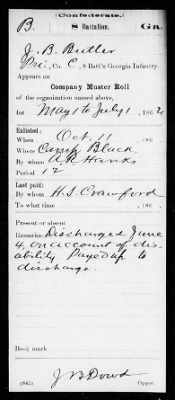 (Confederate.)
B. 8 Battalion. Ga.
J. B. Butler
Pri., Co. C, 8 Batt'n Georgia Infantry.
Appears on
Company Muster Roll
of the organization named above,
for May 1 to July 1, 1862
Enlisted:
When Oct. 11, 186 .
Where Camp Black
By whom A. R. Hanks
Period 12
Last paid:
By whom H. S. Crawford
To what time , 186 .
Present or absent
Remarks: Discharged June
4, on account of dis-
ability. Payed up to
discharge.
Book mark:
J B Dowd
(642) Copyist.